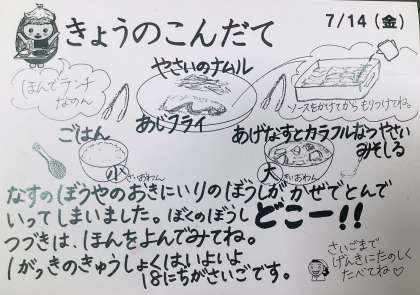 きょうのこんだて
7/14(金)
ほんでランチ
なのん
やさいのナムル
あじフライ
ソースをかけてからもりつけてね。
ごはん
小
さいおわん
あげなすとカラフルなつやさい
みそしる
大
さいおわん
なすのぼうやのおきにいりのぼうしが、かぜでとんで
いってしまいました。ぼくのぼうし どこー!!
つづきは、ほんをよんでみてね。
1がっきのきゅうしょくはいよいよ
18にちがさいごです。
さいごまで
げんきにたのしく
たべてね♡